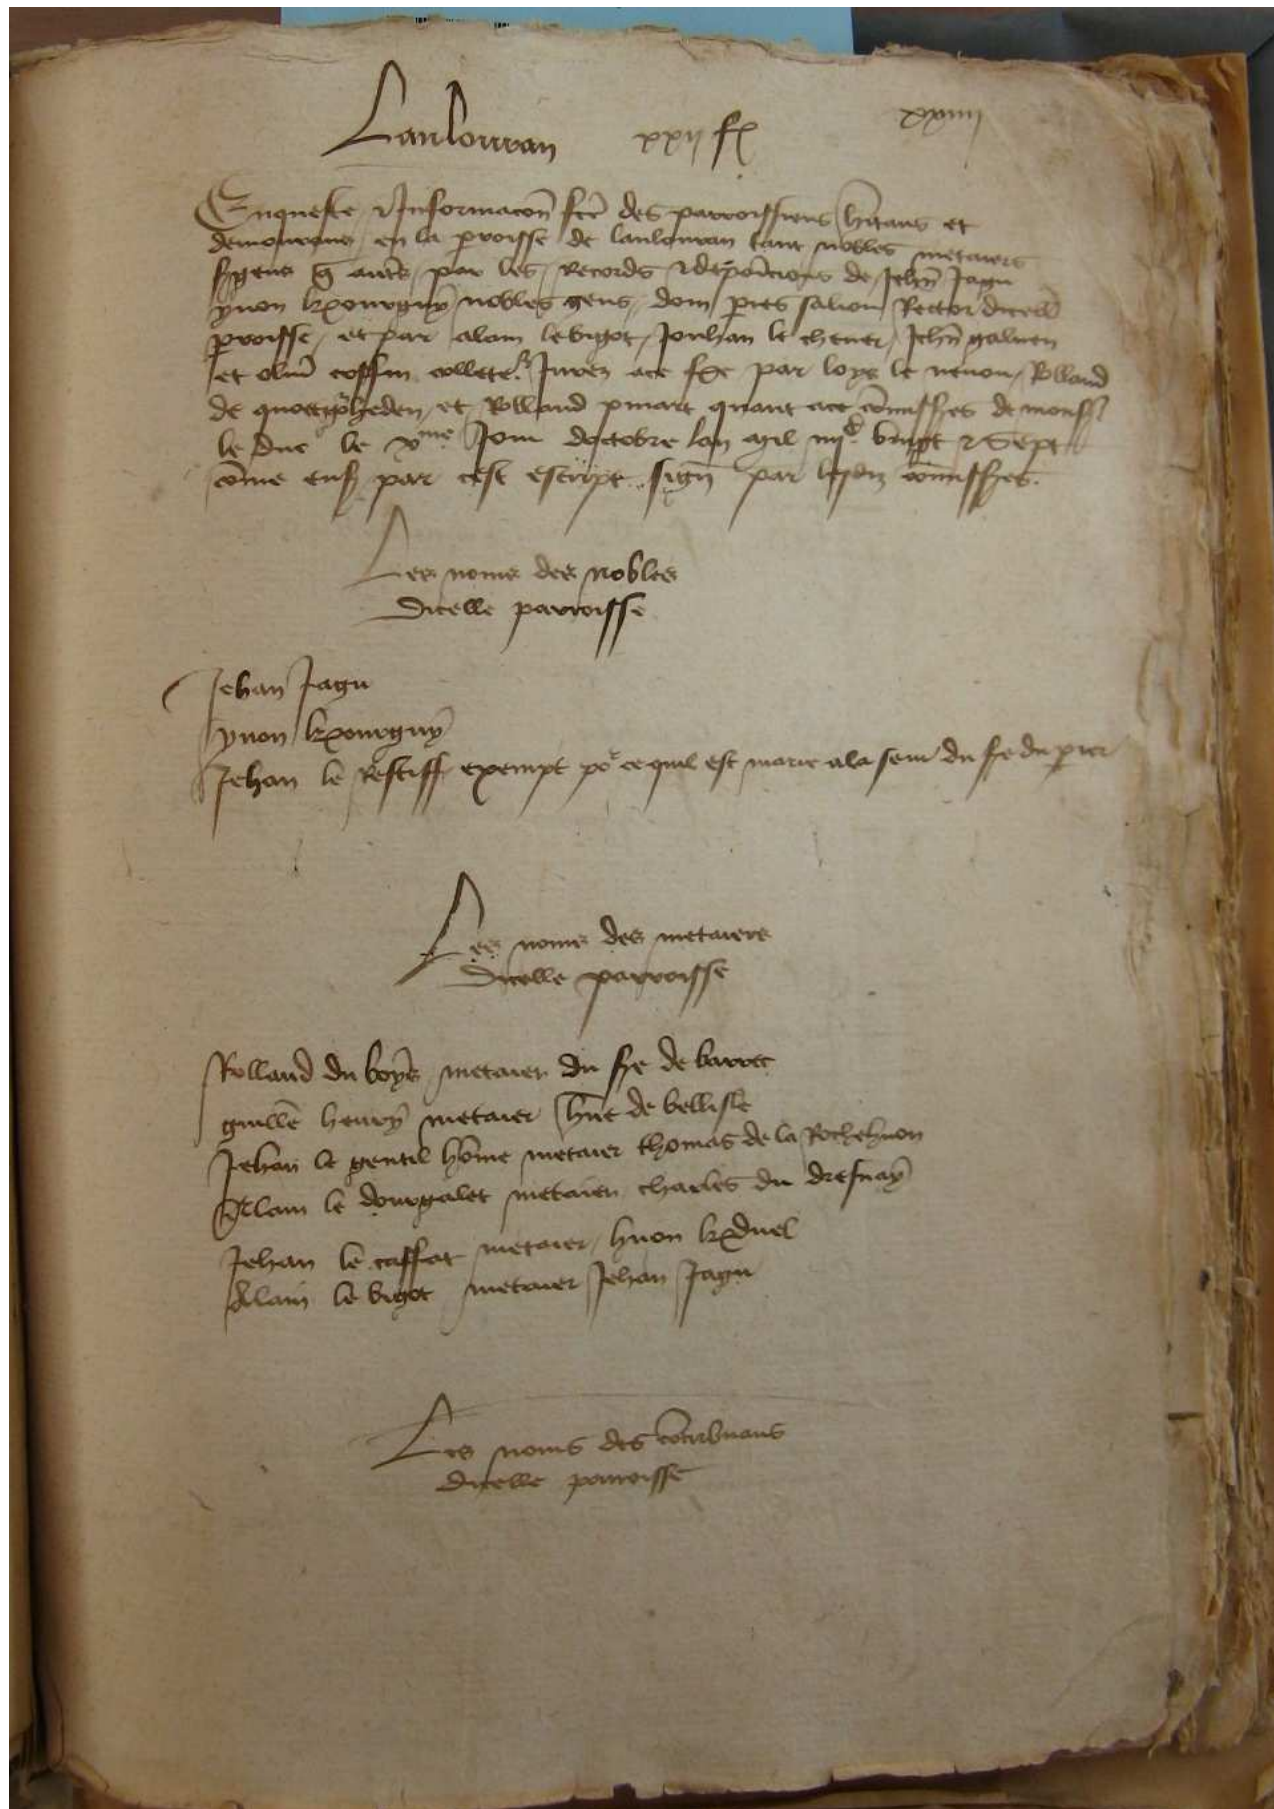 Lanlouvan xxii f
xxiiii
Enqueste & Informacon fcte des parroissiens hitans et
demourans en la proisse de lanlouvan tant nobles metaiers
que autres par les Records & depoicions de Jehn Jagu
yuon kxourguy nobles gens dom pres salion Rector dicelle
proisse et par alain le bigot Jouhan le chever Jehn galuen
et oliu coffin Jurez ace par loys le neuou Rolland
de quoetgoheden et Rolland pmart quant ace comissres de monsr
le duc le xme Jour doctobre lan mil iiijc vingt & Sept
come ensf par cest escript sign par lesdiz comissres
Les noms des nobles
dicelle parroisse
Jehan Jagu
yuon kxourguy
Jehan le Restiff exempt por ce quil est marie ala seur du
Les noms des metaiers
dicelle parroisse
Rolland du boys metaier du sre de barrec
guille henry metaier hue de bellisle
Jehan le gentil home metaier thomas de la Rochehuon
Alain le dourgalet metaier charles du dresnay
Jehan le caffat metaier huon kxduel
Alain le bigot metaier Jehan Jagu
Les noms des contribuans
dicelle parroisse